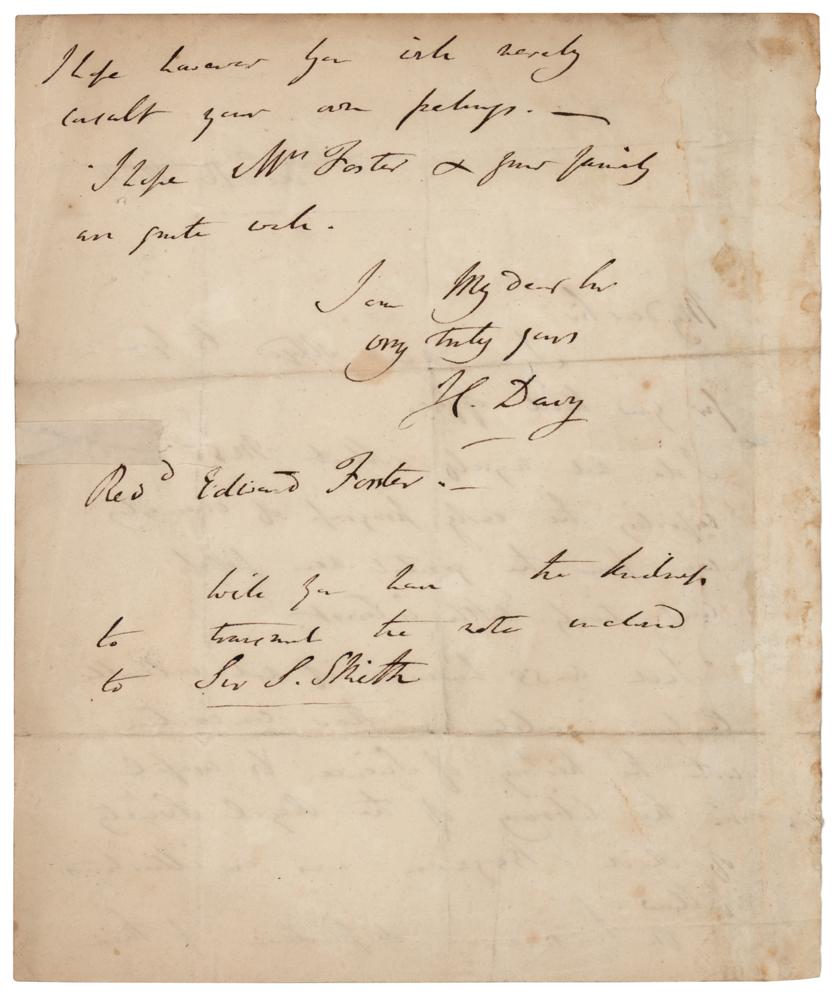 I hope however you will merely
consult your own feelings. —
I hope Mrs Foster & your family
are quite well.
I am My dear Sir
very truly yours
H. Davy
Revd Edward Foster. —
Will you have the kindness
to transmit the note enclosed
to Sir S. Smith